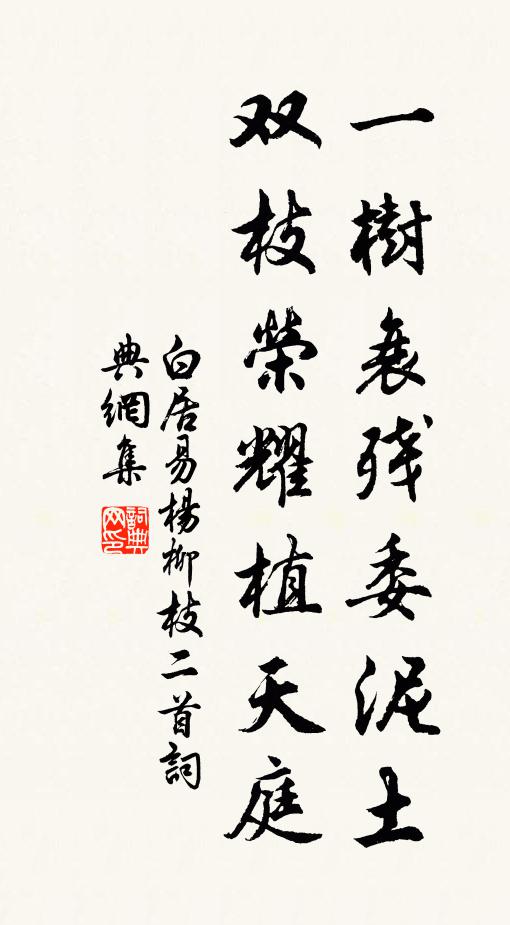 一樹衰残委泥土
双枝榮耀植天庭
白居易楊柳枝二首詞
典網集
詞典網印